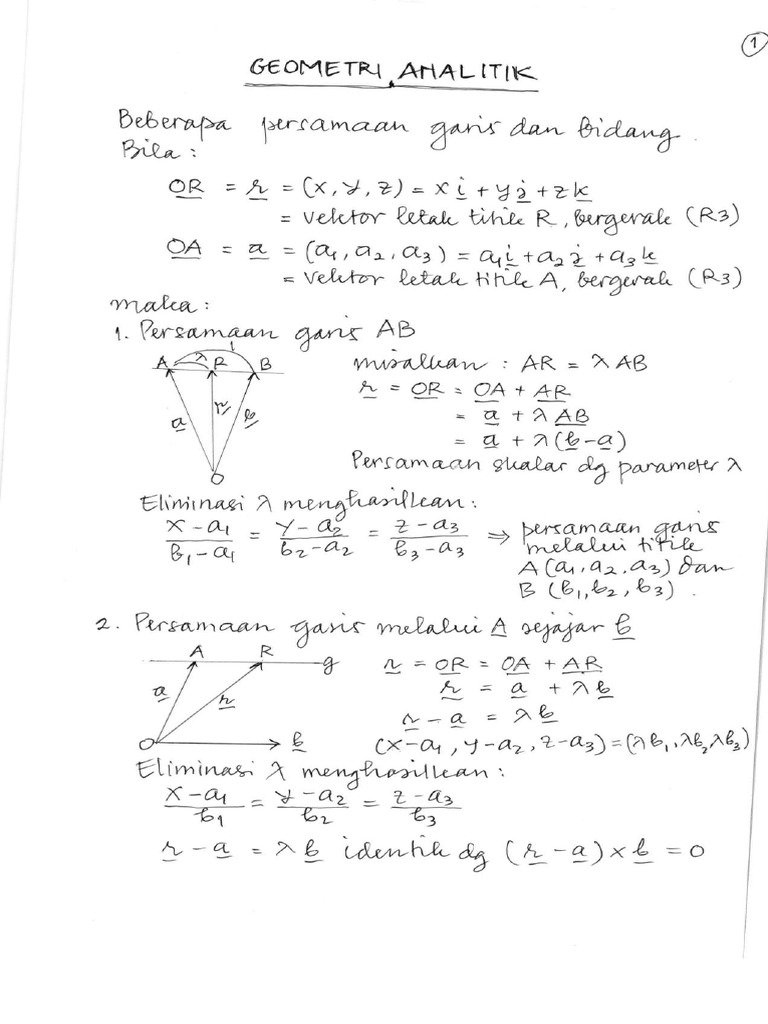 1
GEOMETRI ANALITIK
Beberapa persamaan garis dan bidang.
Bila :
OR = r = (x, y, z) = x i + y j + z k
= vektor letak titik R, bergerak (R3)
OA = a = (a1, a2, a3) = a1 i + a2 j + a3 k
= vektor letak titik A, bergerak (R3)
maka :
1. Persamaan garis AB
1
A λ R B
a r b
O
misalkan : AR = λ AB
r = OR = OA + AR
= a + λ AB
= a + λ (b - a)
Persamaan skalar dg parameter λ
Eliminasi λ menghasilkan :
(x - a1)/(b1 - a1) = (y - a2)/(b2 - a2) = (z - a3)/(b3 - a3) ⇒ persamaan garis
melalui titik
A (a1, a2, a3) dan
B (b1, b2, b3) .
2. Persamaan garis melalui A sejajar b
A R g
a r
O b
r = OR = OA + AR
r = a + λ b
r - a = λ b
(x - a1, y - a2, z - a3) = (λb1, λb2 λb3)
Eliminasi λ menghasilkan :
(x - a1)/b1 = (y - a2)/b2 = (z - a3)/b3
r - a = λ b identik dg (r - a) × b = 0